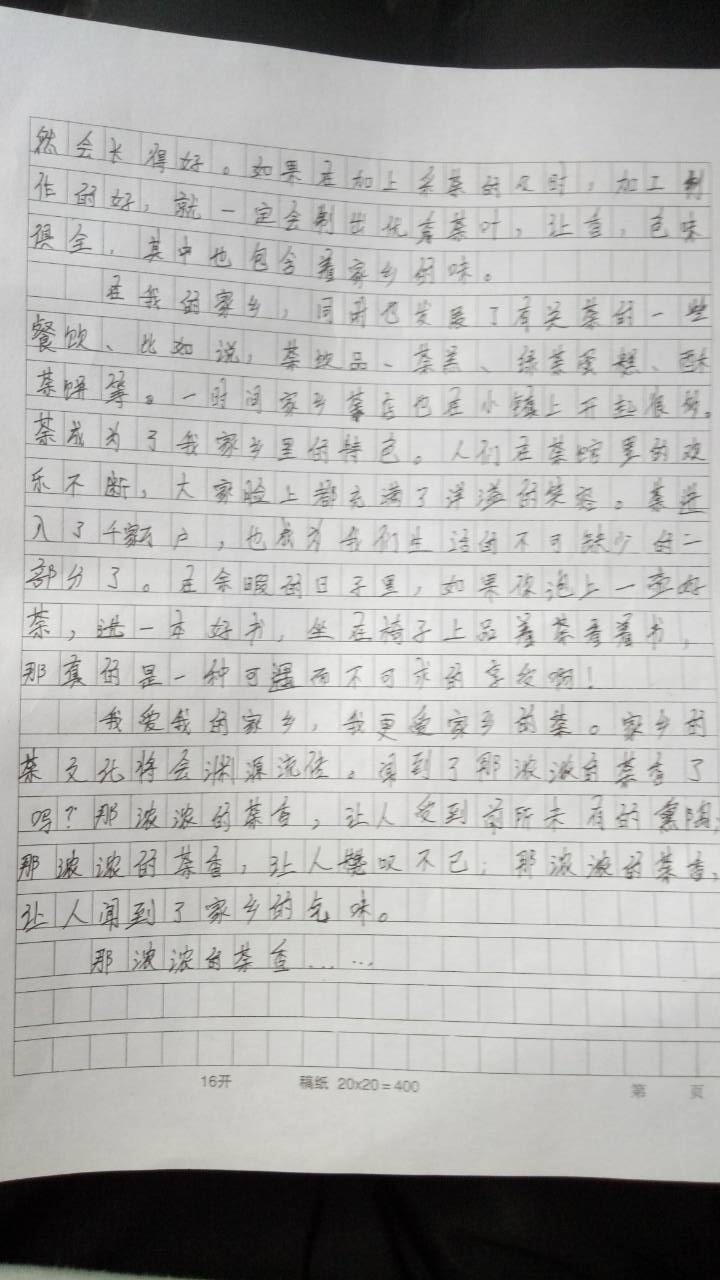 然会长得好。如果在加上采茶的及时，加工制
作的好，就一定会制出优质茶叶，让香，色味
俱全，其中也包含着家乡的味。
在我的家乡，同时也发展了有关茶的一些
餐饮、比如说，茶饮品、茶羔、绿茶蛋糕、酥
茶饼等。一时间家乡茶店也在小镇上开起很多。
茶成为了我家乡里的特色。人们在茶馆里的欢
乐不断，大家脸上都充满了洋溢的笑容。茶进
入了千家万户，也成为我们生活的不可缺少的一
部分了。在余暇的日子里，如果你泡上一壶好
茶，选一本好书，坐在椅子上品着茶看着书，
那真的是一种可遇而不可求的享受啊！
我爱我的家乡，我更爱家乡的茶。家乡的
茶文化将会渊源流传。闻到了那浓浓的茶香了
吗？那浓浓的茶香，让人受到前所未有的熏陶；
那浓浓的茶香，让人赞叹不已；那浓浓的茶香，
让人闻到了家乡的气味。
那浓浓的茶香……
16开 稿纸 20x20=400 第 页